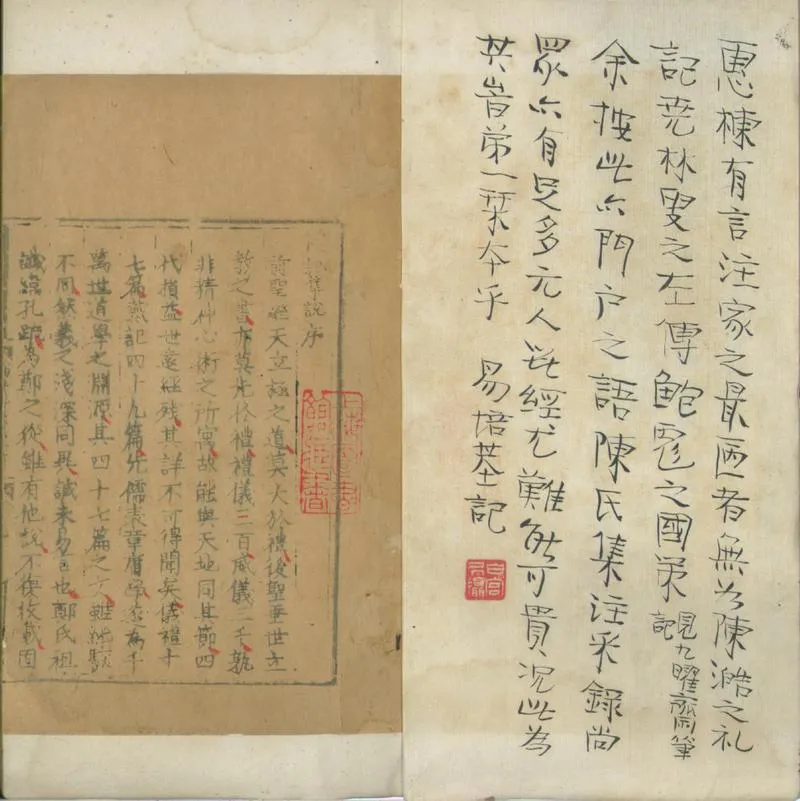 惠棟有言注家之最陋者無如陳澔之礼
記尭林叟之左傳鮑彪之國策見九曜齋筆記
余按此亦門户之語陳氏集注采錄尚
眾亦有足多元人說經尤難能可貴況此為
其書第一栞本乎 易培基記
集說序
前聖繼天立極之道莫大於禮後聖垂世立
教之書亦莫先於禮禮儀三百威儀三千孰
非精神心術之所寓故能與天地同其節四
代損益世遠經殘其詳不可得聞矣儀禮十
七篇戴記四十九篇先儒表章庸學遂為千
萬世道學之淵源其四十七篇之文雖純駁
不同然義之淺深同異誠未易言也鄭氏祖
讖緯孔䟽惟鄭之從雖有他說不復收載固